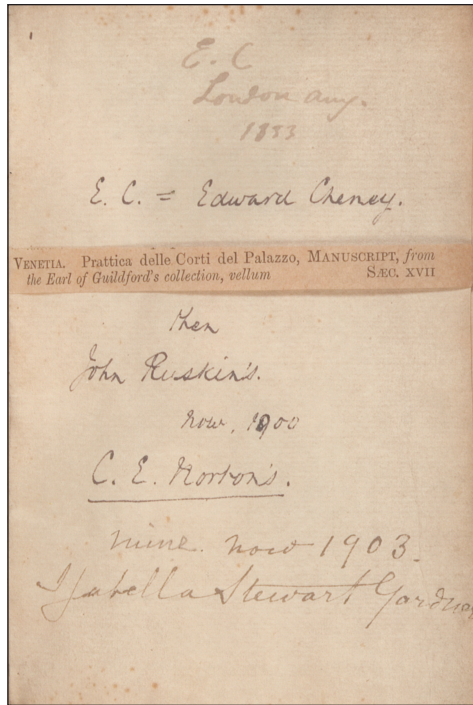 E. C
London Aug.
1853
E. C. = Edward Cheney.
VENETIA. Prattica delle Corti del Palazzo, MANUSCRIPT, from
the Earl of Guildford's collection, vellum SÆC. XVII
then
John Ruskin's.
now, 1900
C. E. Norton's.
mine. now 1903.
Isabella Stewart Gardner